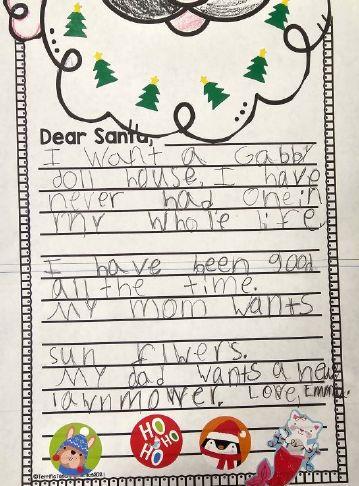 Dear Santa,
I want a Gabby
doll house. I have
never had one in
my whole life.
I have been good
all the time.
My mom wants
sun flwers.
My dad wants a new
lawnmower. Love, Emma.
HO
HO HO
HO